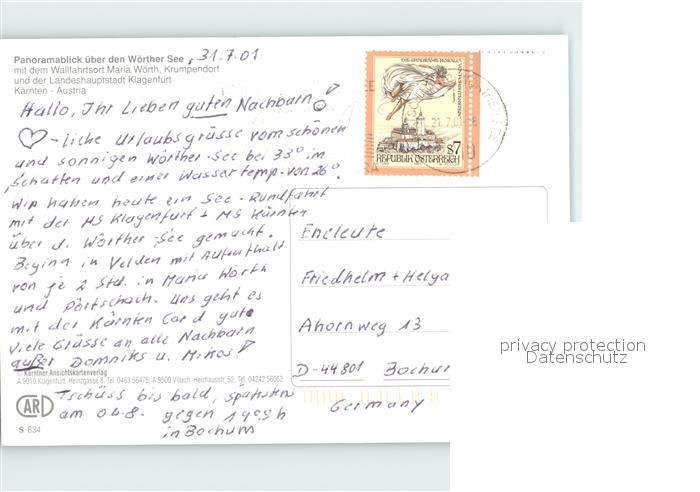 Panoramablick über den Wörther See, 31.7.01
mit dem Wallfahrtsort Maria Wörth, Krumpendorf
und der Landeshauptstadt Klagenfurt
Kärnten - Austria
Hallo, Ihr Lieben guten Nachbarn!
♡-liche Urlaubsgrüsse vom schönen
und sonnigen Wörther-See bei 33° im
Schatten und einer Wassertemp. von 26°.
Wir haben heute ein See-Rundfahrt
mit der MS Klagenfurt + MS Kärnten
über d. Wörther-See gemacht.
Beginn in Velden mit Aufenthalt
von je 2 Std. in Maria Wörth
und Pörtschach. Uns geht es
mit der Kärnten Card gut.
Viele Grüsse an alle Nachbarn
außer Domniks u. Mikos!
Kärntner Ansichtskartenverlag
A 9010 Klagenfurt, Heinzgasse 8, Tel. 0463 56475, A 9500 Villach, Heizhausstr. 52, Tel. 04242 56062
Tschüss bis bald, spätestens
am 04.8. gegen
in Bochum
CARD
S 834
REPUBLIK ÖSTERREICH
S7
31.7.01
Eheleute
Friedhelm + Helga
Ahornweg 13
D-44801 Bochum
Germany
privacy protection
Datenschutz